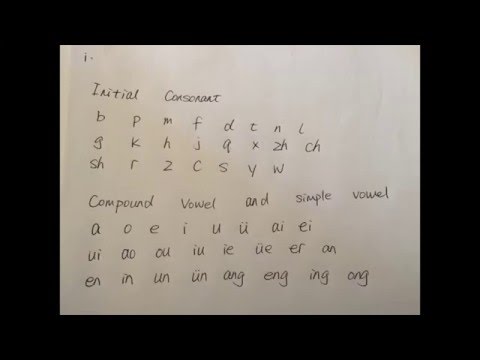 i.
Initial Consonant
b p m f d t n l
g k h j q x zh ch
sh r z c s y w
Compound Vowel and simple vowel
a o e i u ü ai ei
ui ao ou iu ie üe er an
en in un ün ang eng ing ong